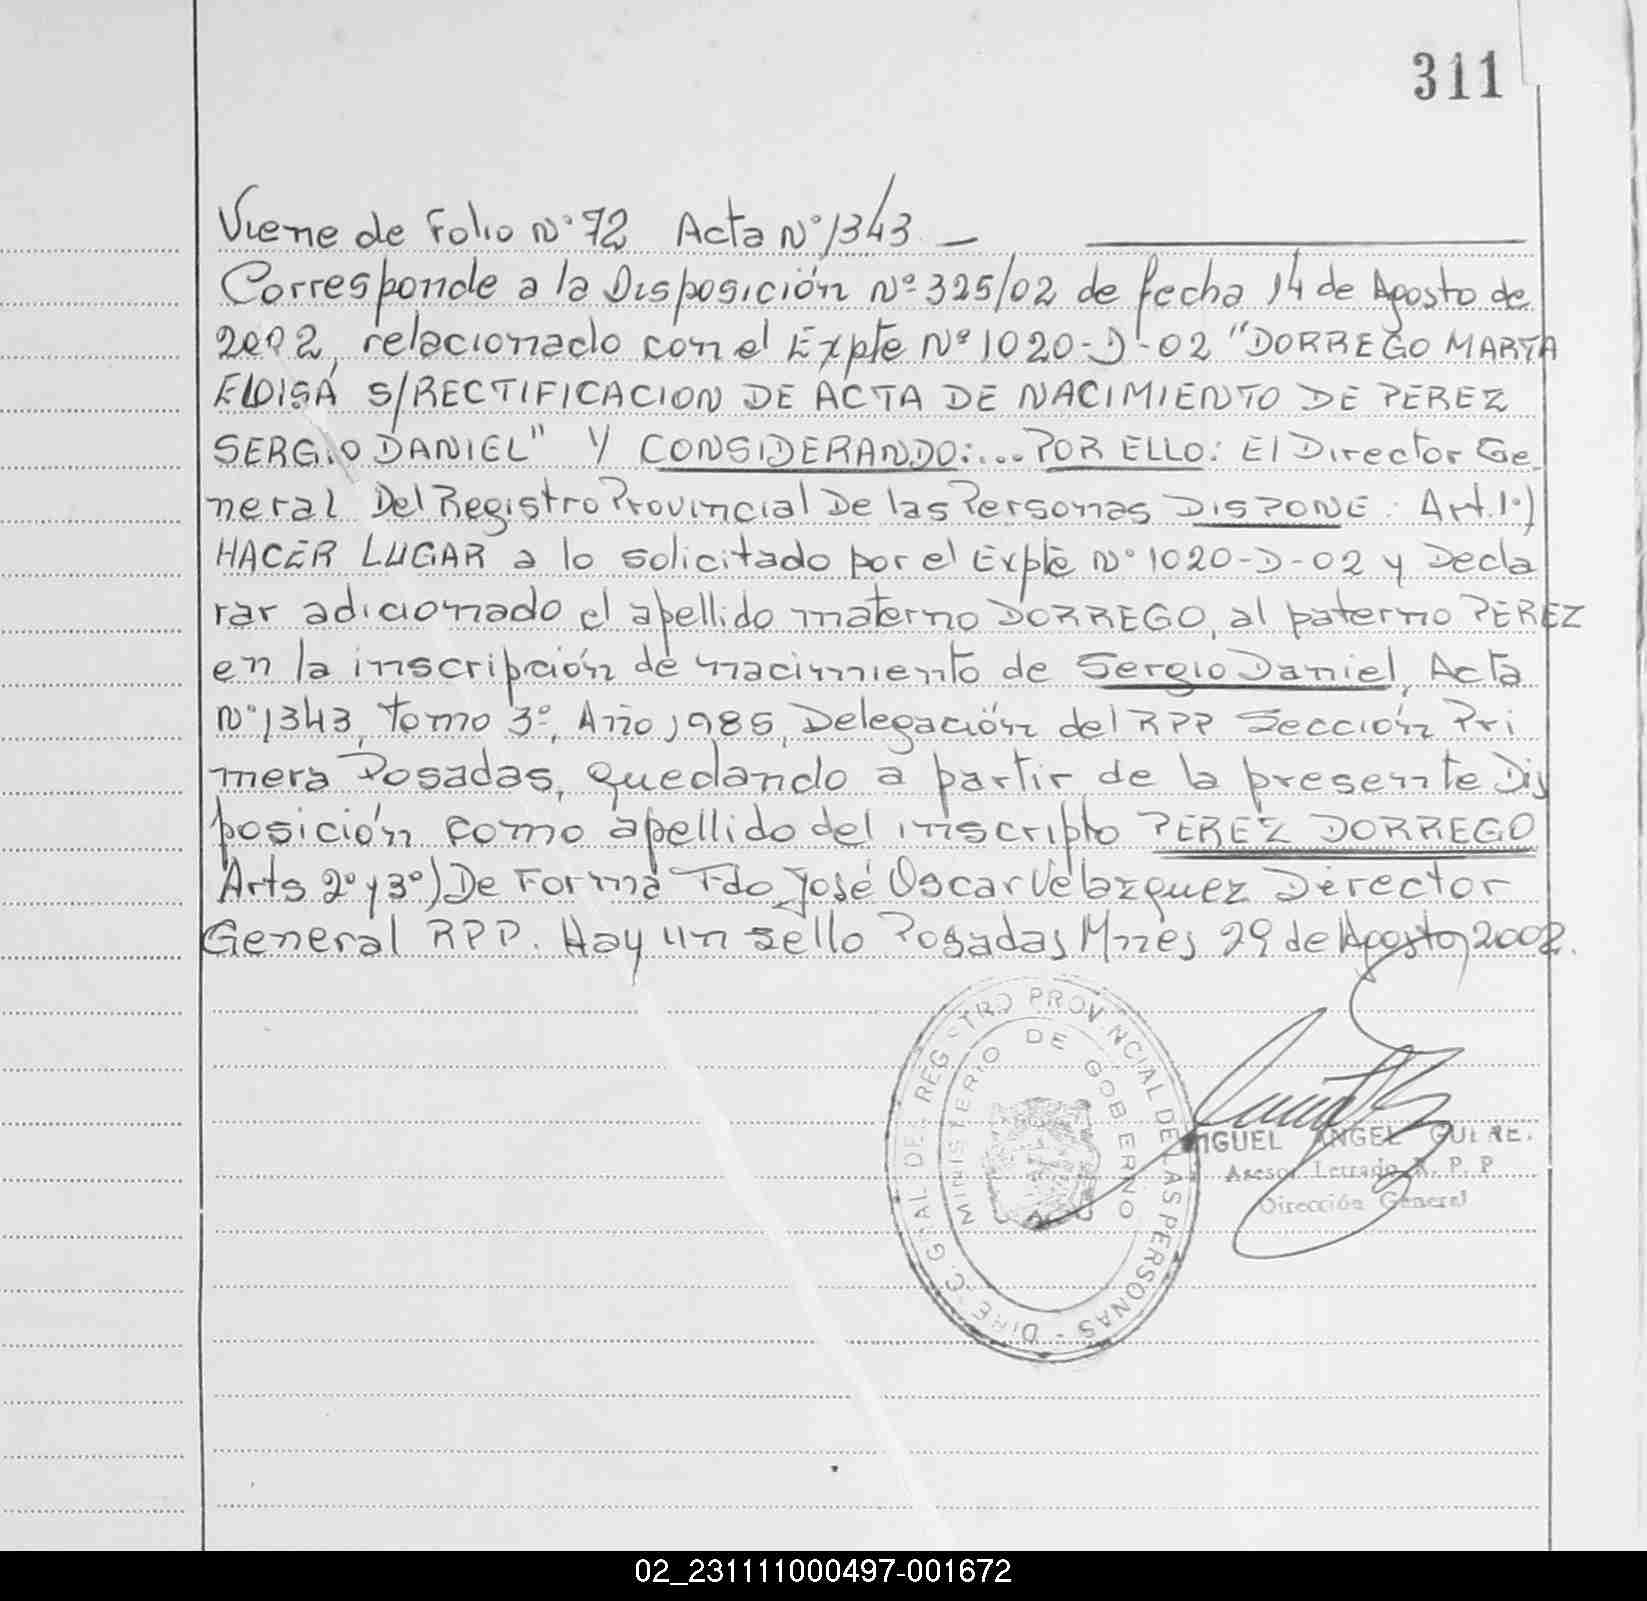 311
Viene de Folio Nº 72 Acta Nº 1343 —
Corresponde a la Disposición Nº 325/02 de fecha 14 de Agosto de
2002, relacionado con el Expte Nº 1020-D-02 "DORREGO MARTA
ELOISA S/RECTIFICACION DE ACTA DE NACIMIENTO DE PEREZ
SERGIO DANIEL" Y CONSIDERANDO:... POR ELLO: El Director Ge
neral Del Registro Provincial De las Personas DISPONE: Art. 1º)
HACER LUGAR a lo solicitado por el Expte Nº 1020-D-02 y Decla
rar adicionado el apellido materno DORREGO, al paterno PEREZ
en la inscripción de nacimiento de Sergio Daniel, Acta
Nº 1343, tomo 3º, Año 1985, Delegación del RPP Sección Pri
mera Posadas, quedando a partir de la presente Dis
posición como apellido del inscripto PEREZ DORREGO
Arts 2º y 3º) De Forma Fdo José Oscar Velazquez Director
General RPP. Hay un sello Posadas Mnes 29 de Agosto 2002.
DIREC. GRAL. DEL REGISTRO PROVINCIAL DE LAS PERSONAS -
MINISTERIO DE GOBIERNO
MIGUEL ANGEL
Asesor Letrado R. P. P.
Dirección General
02_231111000497-001672